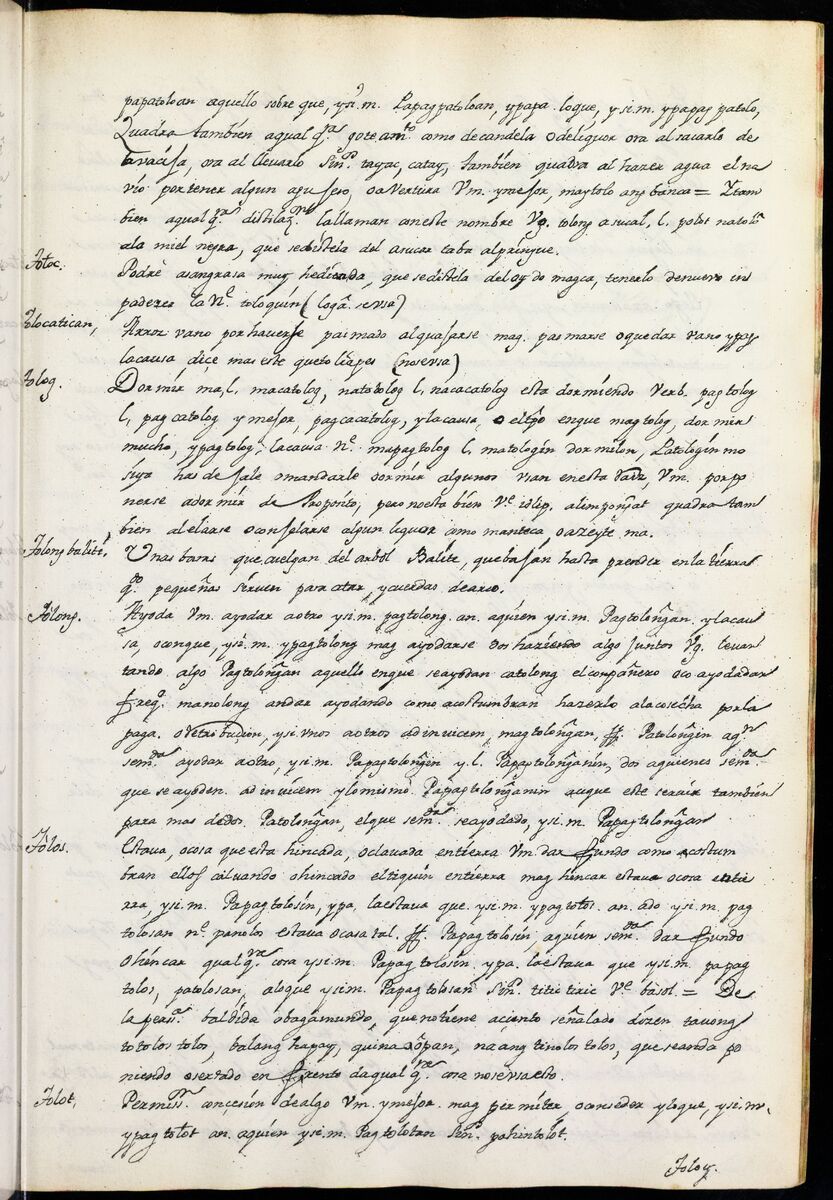 papatoloan aquello sobre que, y si.m. Papagpatoloan, ypapa. loque, y si.m. ypapag patolo,
Quadra tambien aqual q.ra goteam.to como decandela o deliquor ora al sacarlo de
la vacija, ora al llevarlo Sin.o tayac, catay, tambien quadra al hazer agua el na
vio por tener algun agujero, o avertura Vm. ymejor, maytolo ang banca = Ytam
bien aqual q.ra distilaz.on la llaman con este nombre Vg. tolong asucal, l. polot na tolo
a la miel negra, que se distela del asucar taba alprinque.
Toloc. Podre a sangrasa muy hedienda, que se distela del oydo magca, tenerlo denuevo in
padezer la N.e toloquin (loga. se vsa)
Tolocatican, Arroz vano por haverse pasmado al quajarse mag. pasmarse o quedar vano ypag
la causa, dice mas este que toliapes (no se vsa)
Tolog. Dormir ma, l. macatolog, natotolog l, nacacatolog esta dormiendo Verb. pagtolog
l, pagcatolog y mejor, pagcacatolog, y la causa, o eltpo en que magtolog, dormir
mucho, ypagtolog, la causa N.e mapagtolog l. matologin dormilon, Patologin mo
siya has de jale o mandarle dormir algunos vsan en esta raiz, Vm. por po
nerse a dormir de Proposito, pero no esta bien V.e idlip. alimpongat quadra tam
bien al elarse o conjelarse algun liquor como manteca, o azeyte ma.
Tolong baliti. Vnas barbas que cuelgan del arbol Balite, que bajan hasta prender en la tierra
q.do pequeñas sirven para atar, y cuerdas de arco.
Tolong. Ayuda Vm. ayudar a otro y si.m. pagtolong. an. aquien y si.m. Pagtolongan. y la cau
sa, o conque, y si.m. ypagtolong mag ayudarse dos haziendo algo juntos Vg. levan
tando algo Pagtolongan aquello en que se ayudan catolong el compañero o coayudador
freq.o manolong andar ayudando como acostumbran hazerlo ala cosecha por la
paga. o retribucion, y si vnos a otros ad in vicem, magtolongan, ff. Patolongin aq.n
sem.da ayudar a otro, y si.m. Papagtolongin y l. Papagtolonganin, dos aquienes sem.da
que se ayuden. ad in vicem y lo mismo. Papagtolonganin auque este servir tambien
para mas de dos. Patolongan, el que sem.da sea ayudado, y si.m. Papagtolongan
Tolos. Estaca, o cosa que esta hincada, o clavada en tierra Vm. dar fundo como acostum
bran ellos calvando o hincado el tiquin en tierra mag hincar estaca o cosa en tie
rra, y si.m. Papagtolosin, ypa, la estaca que. y si.m. ypagtolos. an. ado y si.m. pag
tolosan N.e panolos estaca o cosa tal. ff. Papagtolosin aquien sem.da dar fundo
o hincar qual q.ra cosa y si.m. Papagtolosin. ypa. la estaca que y si.m. papag
tolos, patolosan, aloque y si.m. Papagtolosan Sin.o titic tiric V.e basol = De
la pers.a baldida o bagamundo, que no tiene aciento señalado dizen tauong
totolos tolos, balang hapay, quina dopan, na ang tinolos tolos, que se anda po
niendo o sertado en frento da qual q.ra cosa no se vsa esto.
Tolot, Permiss.n concesion de algo Vm. y mejor. mag permiter, o conseder y loque, y si.m.
ypagtolot an. aquien y si.m. Pagtolotan Sin.o pahintolot.
Toloy.